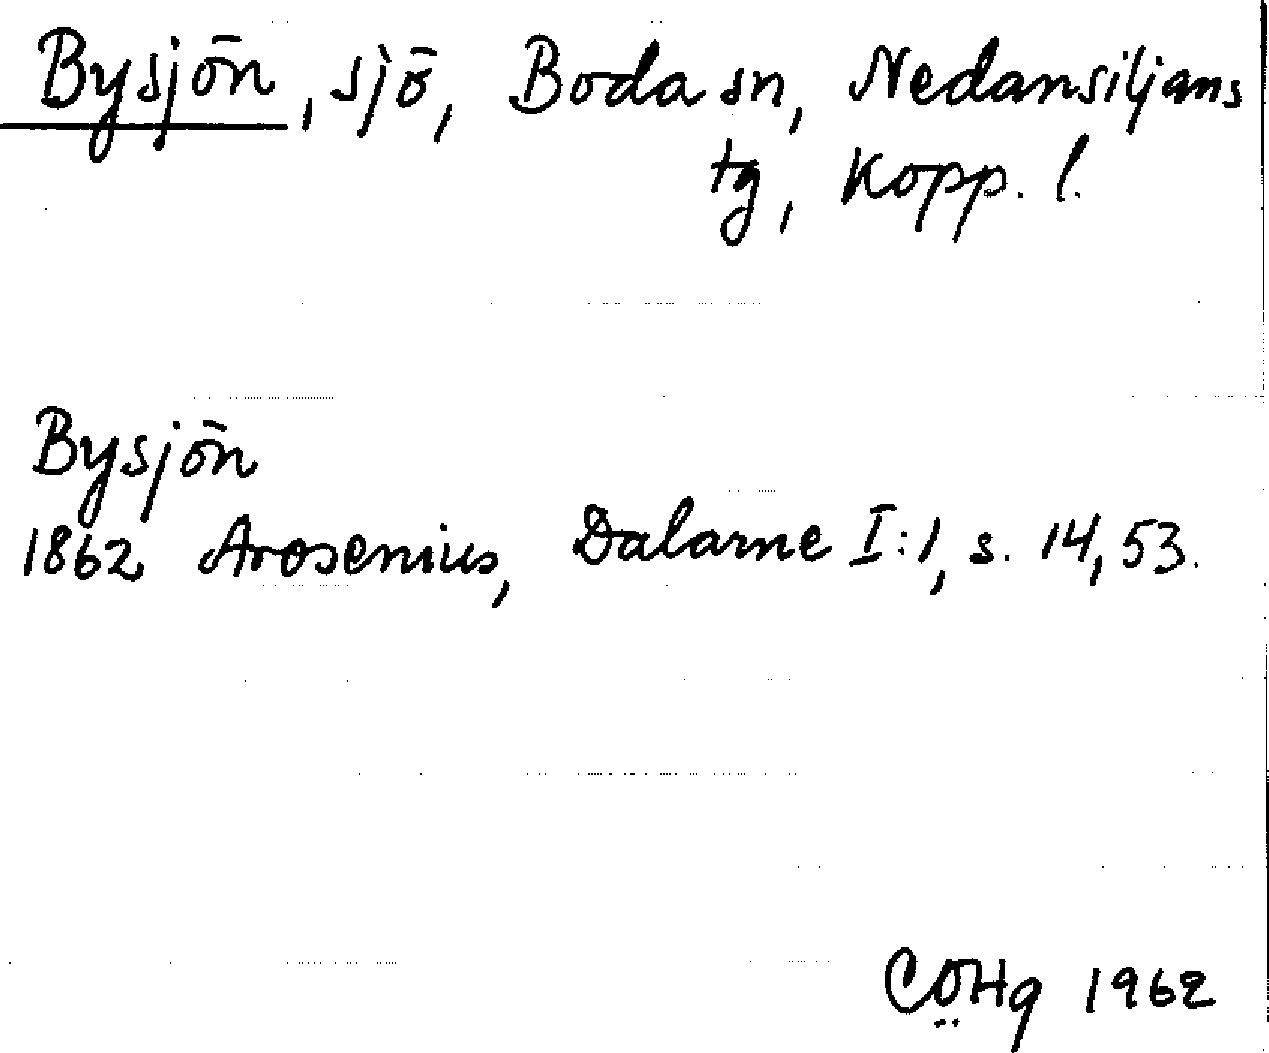 Bysjön, sjö, Boda sn, Nedansiljans
tg, Kopp. l.
Bysjön
1862 Arosenius, Dalarne I:1, s. 14, 53.
CÖHg 1962